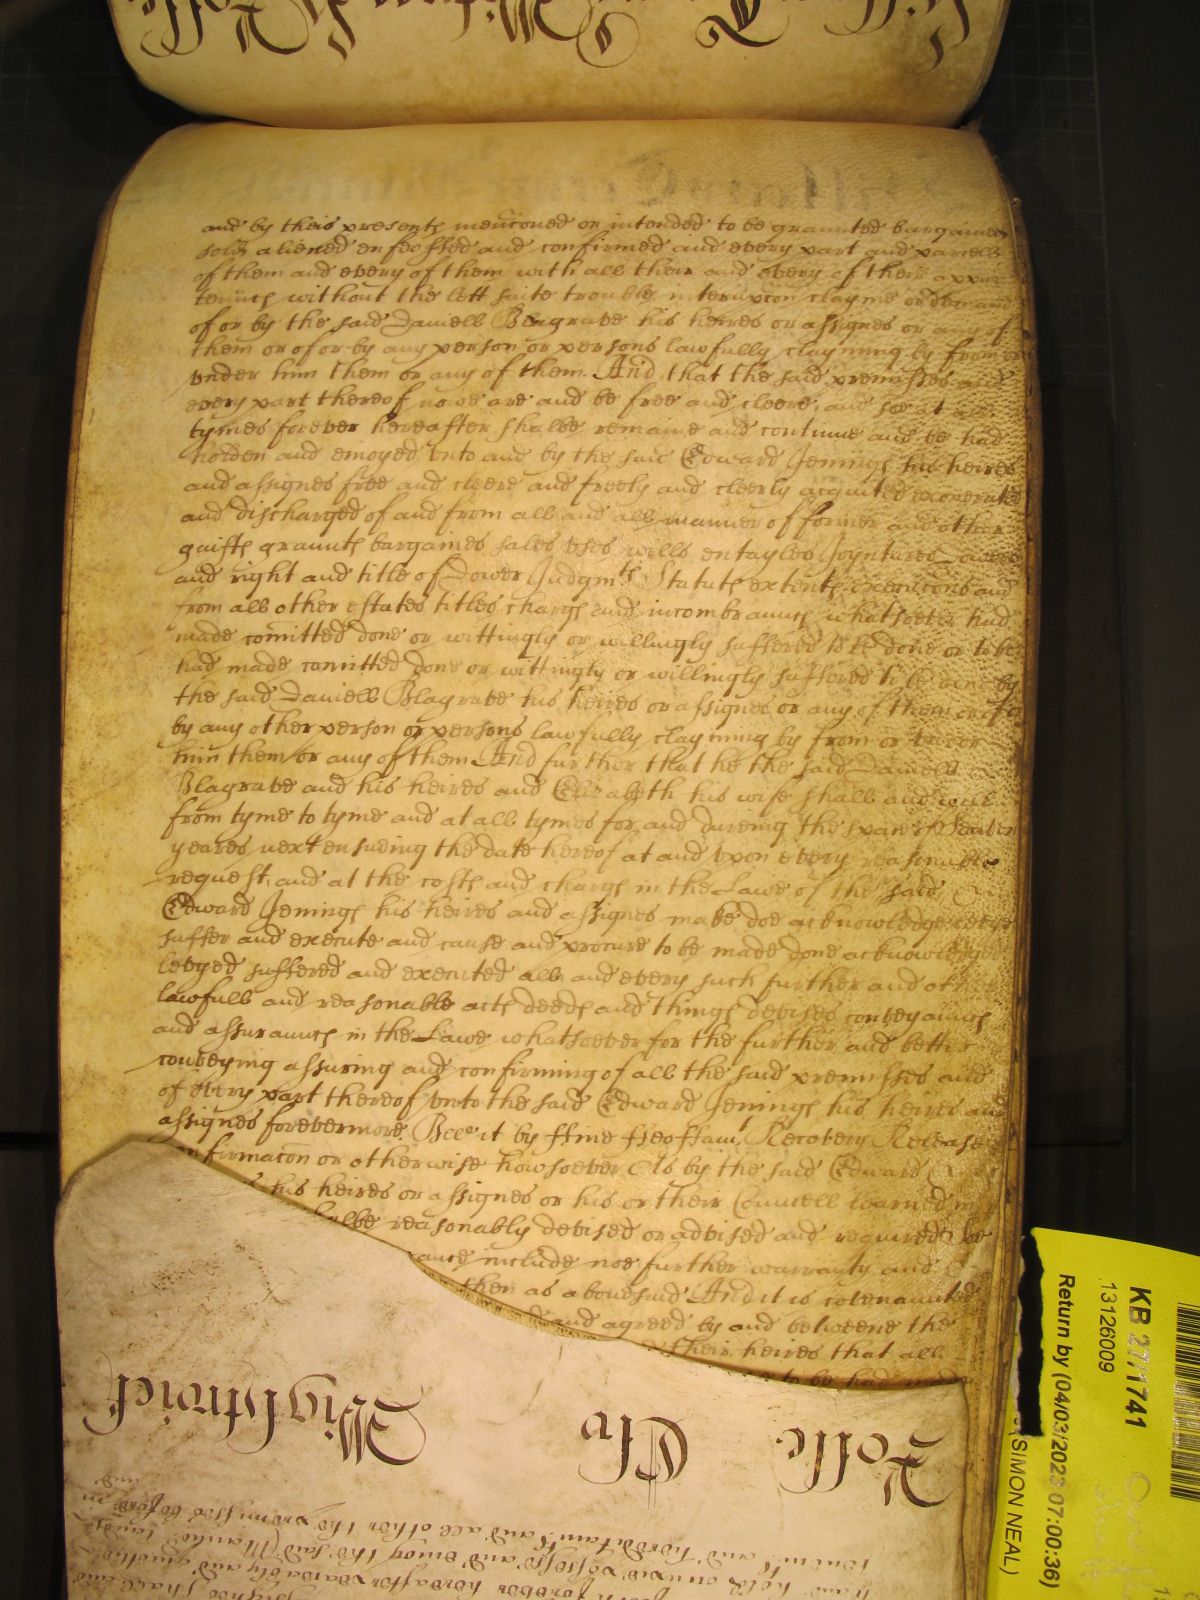 and by theis presents menconed or intended to be graunted bargained
sold aliened enfeoffed and confirmed and every part and parcell
of them and every of them with all their and every of their appur
tenncs without the lett suite trouble interupcon clayme or demand
of or by the said Daniell Blagrave his heires or assignes or any of
them or of or by any person or persons lawfully clayming by from or
vnder him them or any of them And that the said premisses and
every part thereof now are and be free and cleere and soe at all
tymes forever hereafter shalbe remaine and continue and be had
holden and enioyed vnto and by the said Edward Jenings his heires
and assignes free and cleere and freely and cleerly acquited exonerated
and discharged of and from all and all manner of former and other
guifts graunts bargaines sales vses wills entayles Joyntures
and right and title of Dower Judgmts Statuts extents execucons and
from all other estates titles chargs and incombraunces whatsoever had
made comitted done or wittingly or willingly suffered to be done or to be
had made comitted done or wittingly or willingly suffered to be done by
the said Daniell Blagrave his heires or assignes or any of them or of or
by any other person or persons lawfully clayming by from or vnder
him them or any of them And further that he the said Daniell
Blagrave and his heires and Elizabeth his wife shall and will
from tyme to tyme and at all tymes for and dureing the space of Seaven
yeares next ensueing the date hereof at and vpon every reasonable
request and at the costs and chargs in the Lawe of the said
Edward Jenings his heires and assignes make doe acknowledge levye
suffer and execute and cause and procure to be made done acknowledged
levyed suffered and executed all and every such further and other
lawfull and reasonable acts deeds and things devises conveyaunces
and assuraunces in the Lawe whatsoever for the further and better
conveying assuring and confirming of all the said premisses and
of every part thereof vnto the said Edward Jenings his heires and
assignes forevermore Bee it by ffine ffeoffam Recovery Release
firmacon or otherwise howsoever As by the said Edward
his heires or assignes or his or their Councell learned in
reasonably devised or advised and required be
include noe further warranty and
then as abovesaid And it is covenaunted
and agreed by and betweene the
their heires that all
to be had made
Rosse Clv Wightwick
tenemts and hereditamts and all other the premisses before in
have hold occupie possesse and enioy the said Mannor lands
forever hereafter peaceably and quietlie
shall and
KB 27/1741
13126009
Return by (04/03/2023 07:00:36)
(SIMON NEAL)